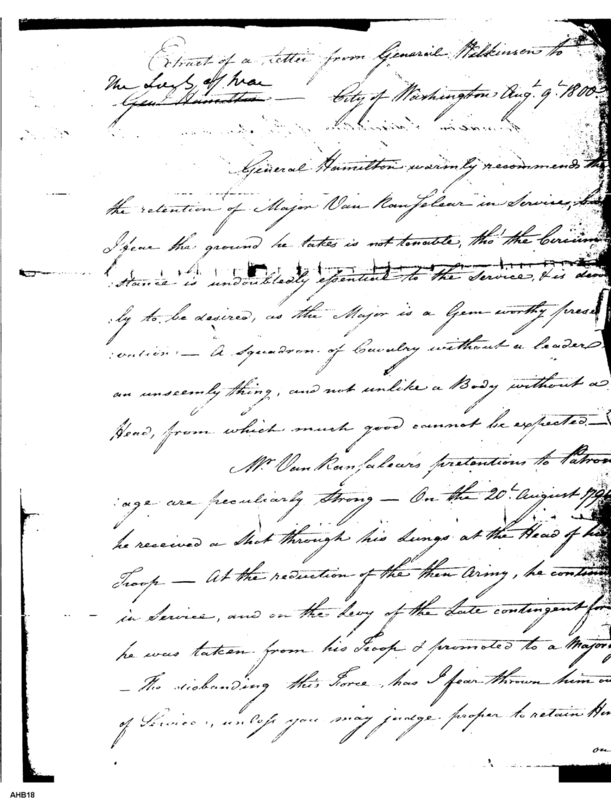 Extract of a letter from General Wilkinson to
the Secty of War
Genl Hamilton — City of Washington Augt 9t 1800
General Hamilton warmly recommends the
the retention of Major Van Ranselear in Service, but
I fear the ground he takes is not tenable, tho' the Circum
stance is undoubtedly essential to the Service, & is
ly to be desired, as the Major is a Gem worthy prese
vation — A Squadron of Cavalry without a leader
an unseemly thing, and not unlike a Body without a
Head, from which much good cannot be expected —
Mr Van Ranselear's pretentions to Patron
age are peculiarly strong — On the 20t August 179
he received a Shot through his Lungs at the Head of his
Troop — At the reduction of the then Army, he continu
in Service, and on the Levy of the Late contingent for
he was taken from his Troop & promoted to a Major
— The disbanding this Force, has I fear thrown him ou
of Service, unless you may judge proper to retain Him
on
AHB18